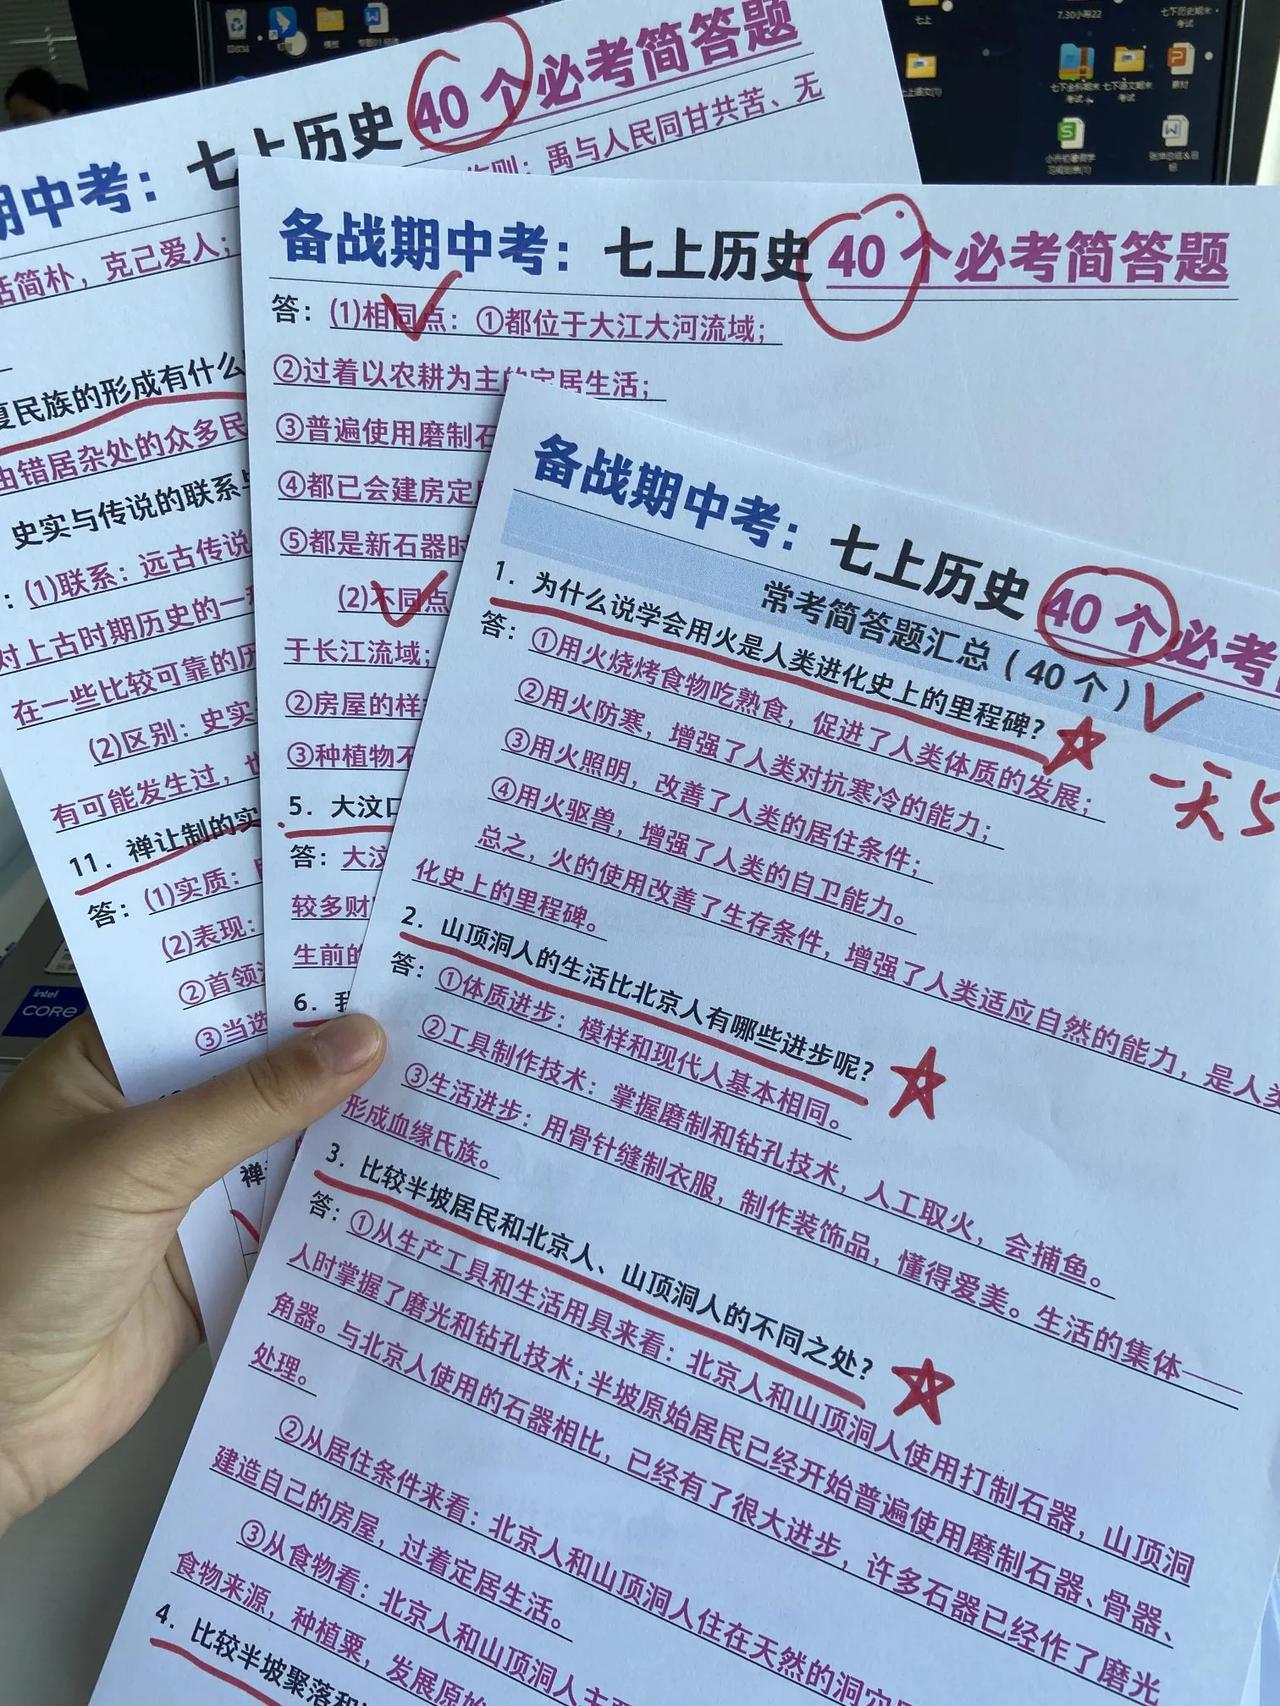 期中考：七上历史 40 个必考简答题
作则；禹与人民同甘共苦、无
活简朴，克己爱人；
夏民族的形成有什么
由错居杂处的众多民
史实与传说的联系与
：(1)联系：远古传说
对上古时期历史的一种
在一些比较可靠的历
(2)区别：史实
有可能发生过，也
11．禅让制的实
答：(1)实质：
(2)表现：
②首领
③当选
禅
备战期中考：七上历史 40 个必考简答题
答：(1)相同点：①都位于大江大河流域；
②过着以农耕为主的定居生活；
③普遍使用磨制石
④都已会建房定居
⑤都是新石器时
(2)不同点
于长江流域；
②房屋的样
③种植物不
5．大汶口
答：大汶
较多财
生前的
6．我
备战期中考：七上历史 40 个必考
常考简答题汇总（40 个）
一天5
1．为什么说学会用火是人类进化史上的里程碑？
答：①用火烧烤食物吃熟食，促进了人类体质的发展；
②用火防寒，增强了人类对抗寒冷的能力；
③用火照明，改善了人类的居住条件；
④用火驱兽，增强了人类的自卫能力。
总之，火的使用改善了生存条件，增强了人类适应自然的能力，是人类
化史上的里程碑。
2．山顶洞人的生活比北京人有哪些进步呢？
答：①体质进步：模样和现代人基本相同。
②工具制作技术：掌握磨制和钻孔技术，人工取火，会捕鱼。
③生活进步：用骨针缝制衣服，制作装饰品，懂得爱美。生活的集体——
形成血缘氏族。
3．比较半坡居民和北京人、山顶洞人的不同之处？
答：①从生产工具和生活用具来看：北京人和山顶洞人使用打制石器，山顶洞
人时掌握了磨光和钻孔技术；半坡原始居民已经开始普遍使用磨制石器、骨器、
角器。与北京人使用的石器相比，已经有了很大进步，许多石器已经作了磨光
处理。
②从居住条件来看：北京人和山顶洞人住在天然的洞穴
建造自己的房屋，过着定居生活。
③从食物看：北京人和山顶洞人主要
食物来源，种植粟，发展原始
4．比较半坡聚落和
intel
CORE